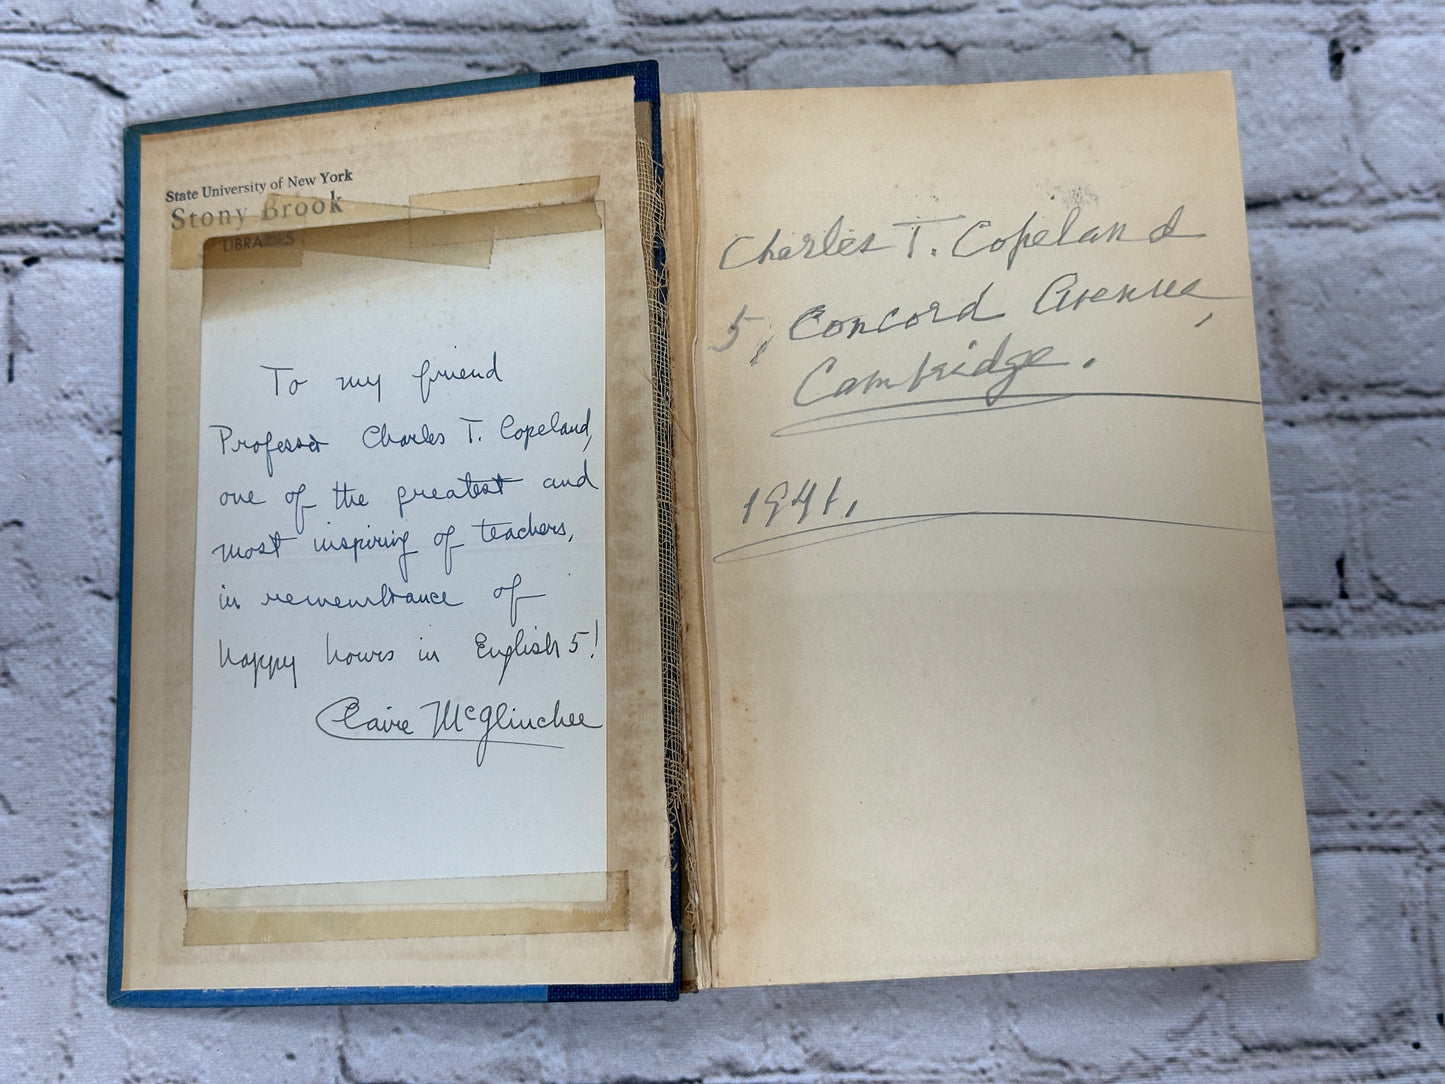 State University of New York
Stony Brook
LIBRARIES
To my friend
Professor Charles T. Copeland,
one of the greatest and
most inspiring of teachers,
in remembrance of
happy hours in English 5!
Claire McGlinchee
Charles T. Copeland
5, Concord Avenue,
Cambridge.
1941.